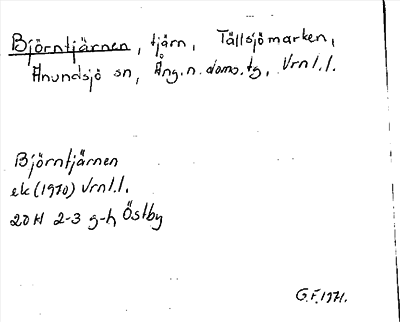 Björntjärnen, tjärn, Tällsjömarken,
Anundsjö sn, Ång.n.doms.tg, Vrnl.l.
Björntjärnen
ek (1970) Vrnl.l.
20H 2-3 g-h Östby
G.F. 1971.